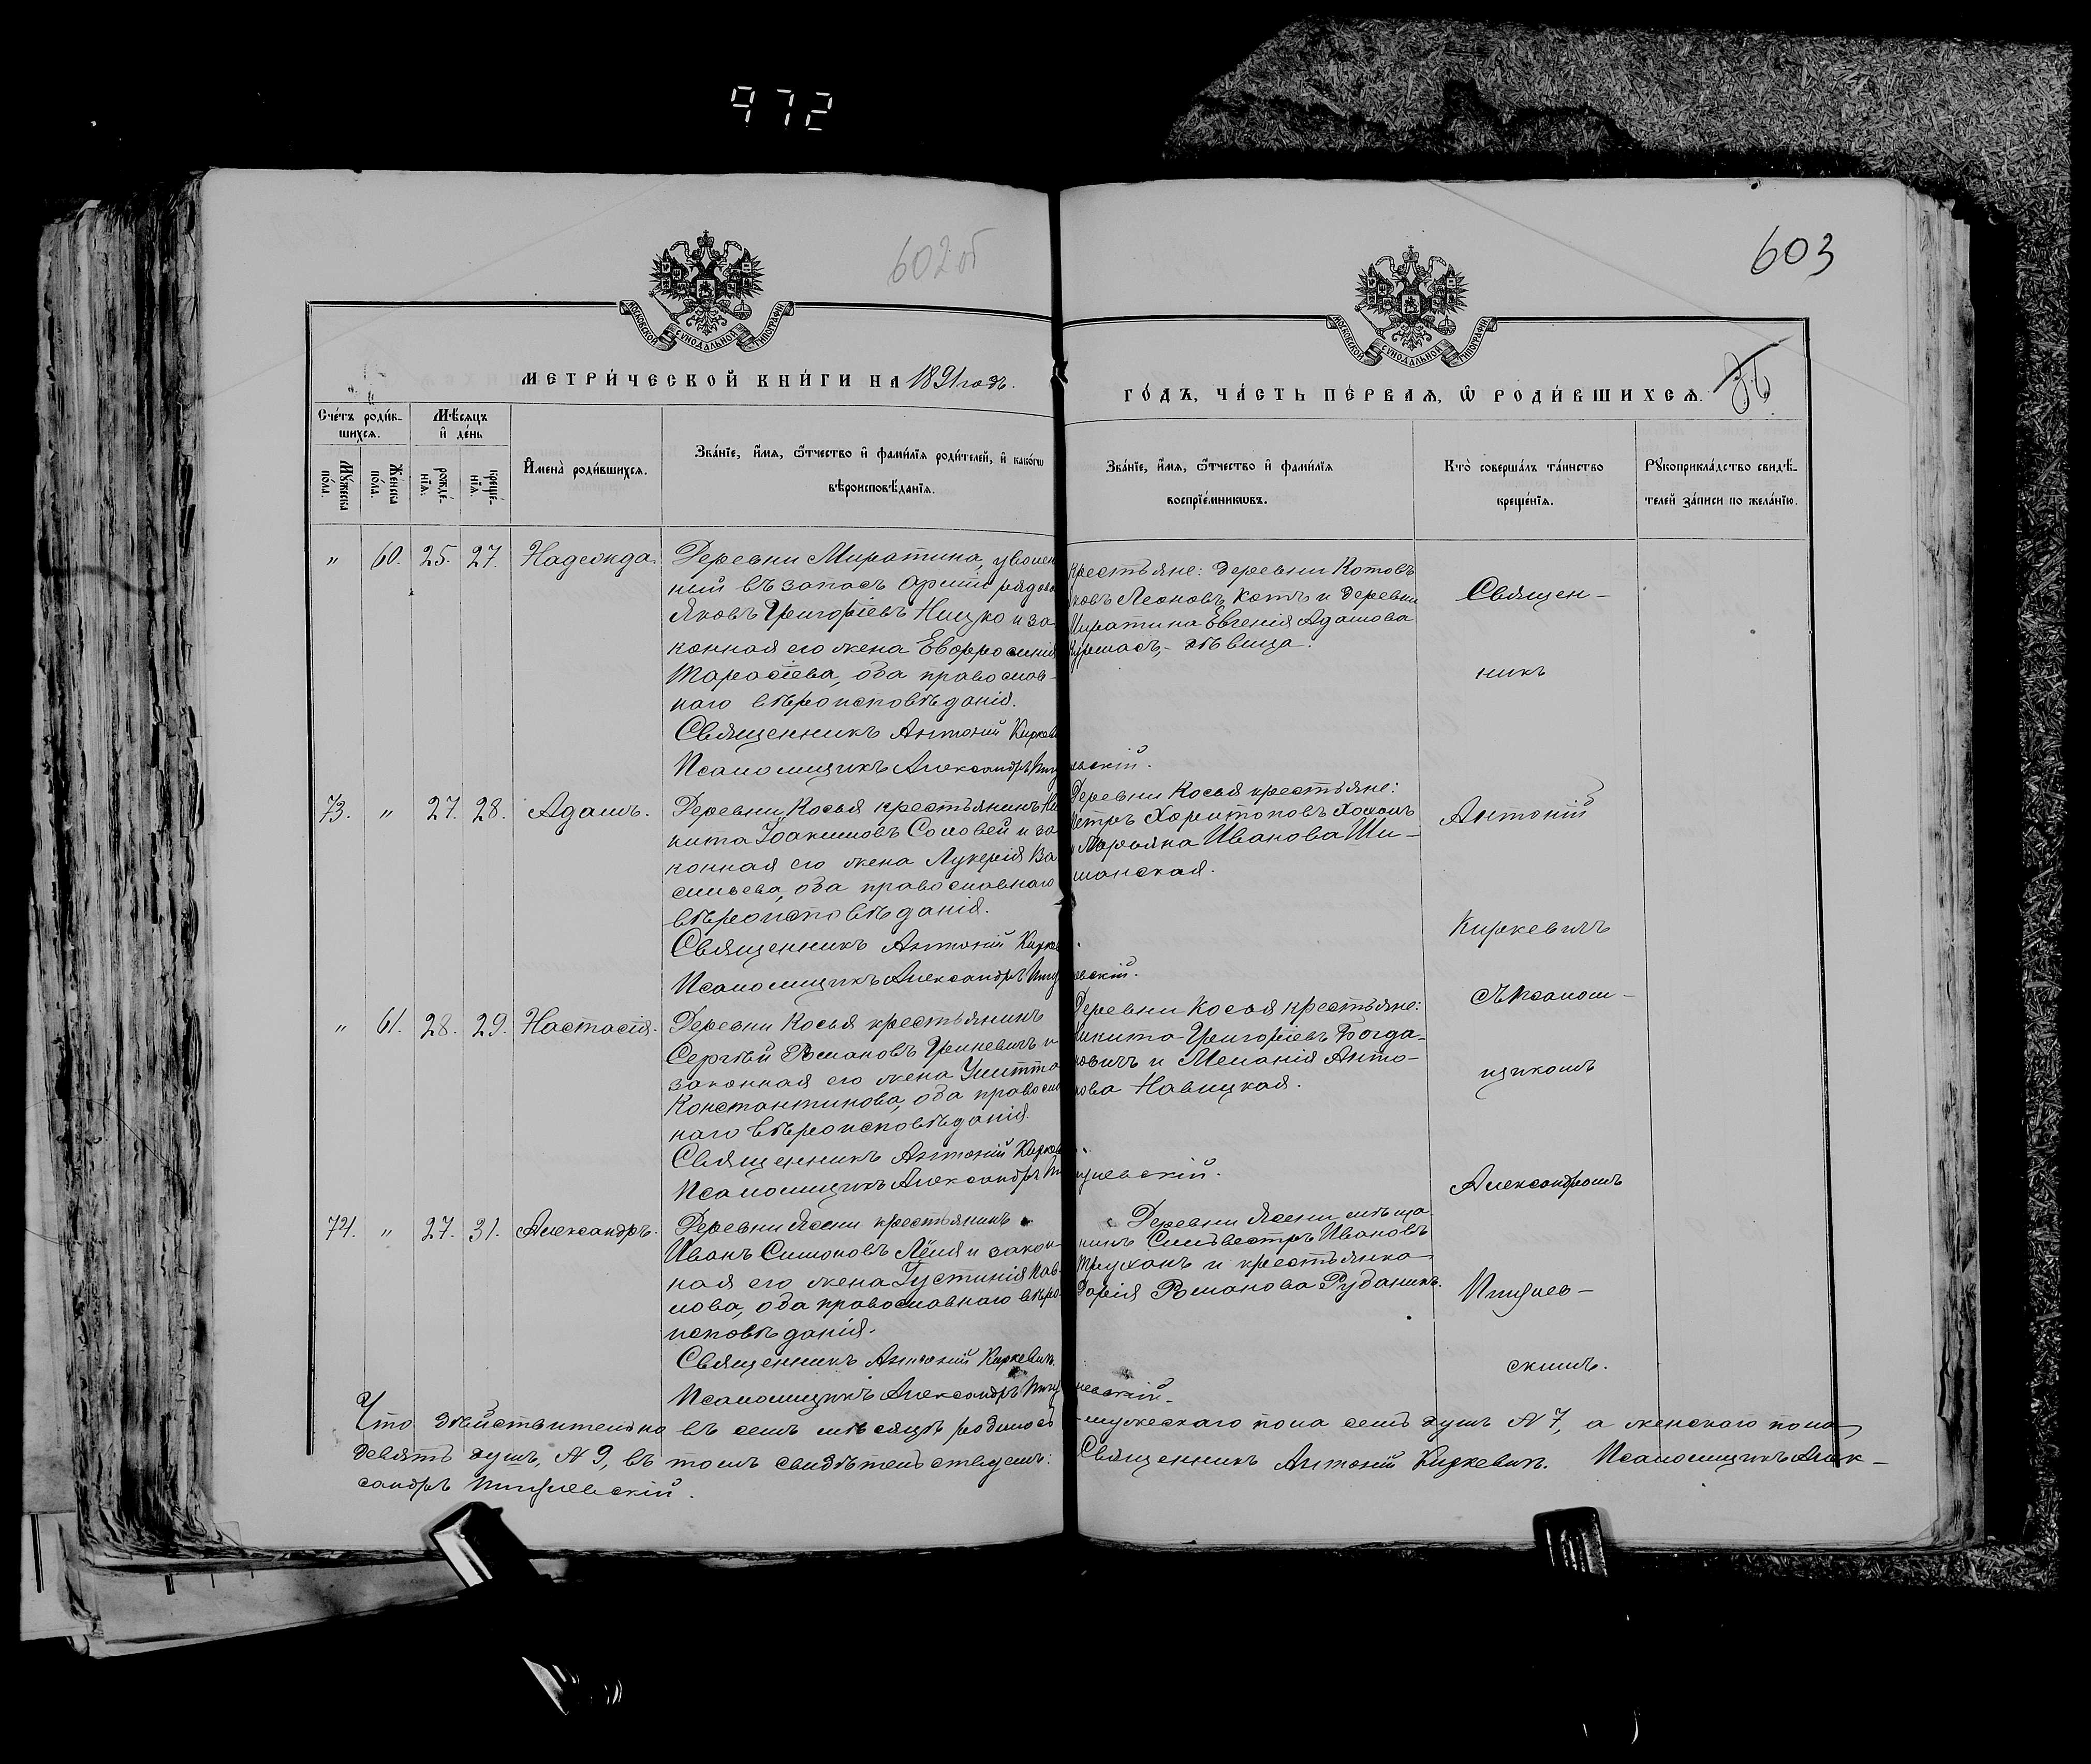 972
602 об
603
МОСКОВСКОЙ СѴНОДАЛЬНОЙ ТИПОГРАФІИ
МОСКОВСКОЙ СѴНОДАЛЬНОЙ ТИПОГРАФІИ
МЕТРИ́ЧЕСКОЙ КНИ́ГИ НА 1891 годъ.
ГО́ДЪ, ЧА́СТЬ ПЕ́РВАѦ, Ѽ РОДИ́ВШИХСѦ.
Сче́тъ роди́в-
шихсѧ.
Мꙋ́жеска по́ла.
Же́нска по́ла.
Мѣ́сѧцъ
и҆ де́нь
рожде́-
нїѧ.
креще́-
нїѧ.
И҆мена̀ роди́вшихсѧ.
Зва́нїе, и҆́мѧ, ѻ҆́тчество и҆ фами́лїѧ роди́телей, и҆ како́гѡ
вѣроисповѣ́данїѧ.
Зва́нїе, и҆́мѧ, ѻ҆́тчество и҆ фами́лїѧ
воспрїе́мникѡвъ.
Кто̀ соверша́лъ та́инство
креще́нїѧ.
Рꙋкоприкла́дство свидѣ́-
телей за́писи по жела́нїю.
" 60. 25. 27. Надежда.
Деревни Миратина, уволен
ный въ запасъ арміи рядово
Яковъ Григоріевъ Ницко и за-
конная его жена Евфросинія
Тарасіева, оба православ-
наго вѣроисповѣданія.
Священникъ Антоній Киркев
Псаломщикъ Александръ
крестьяне: деревни Котовъ
ковъ Леоновъ Котъ и деревни
Миратина Евгенія Адамова
Курмасъ, - дѣвица.
евскій.
73. " 27. 28. Адамъ.
Деревни Косья крестьянинъ Ни
кита Іоакимовъ Соловей и за
конная его жена Лукерія Ва
сильева, оба православнаго
вѣроисповѣданія.
Священникъ Антоній Киркев
Псаломщикъ Александръ
Деревни Косья крестьяне:
Петръ Харитоновъ
и Марьяна Иванова Ши-
манская.
евскій.
" 61. 28. 29. Настасія.
Деревни Косья крестьянинъ
Сергѣй Романовъ Гриневичъ и
законная его жена Улитта
Константинова, оба правосла
наго вѣроисповѣданія.
Священникъ Антоній Киркев
Псаломщикъ Александръ
Деревни Косья крестьяне:
Никита Григоріевъ Богда-
новичъ и Меланія Анто-
нова Навицкая.
евскій.
74. " 27. 31. Александръ.
Деревни Ясени крестьянинъ
Иванъ Симоновъ Лёля и закон-
ная его жена Іустинія Пав-
лова, оба православнаго вѣро
исповѣданія.
Священникъ Антоній Киркевичъ.
Псаломщикъ Александръ
Деревни Ясени мѣща
нинъ Сильвестръ Ивановъ
Трухонъ и крестьянка
Дарія Романова Руданикъ.
евскій.
Священ-
никъ
Антоній
Киркевичъ
съ псалом-
щикомъ
Александромъ
скимъ.
Что дѣйствительно въ семъ мѣсяцѣ родилось мужескаго пола семь душъ № 7, а женскаго пола
девять душъ, № 9, въ томъ свидѣтельствуемъ: Священникъ Антоній Киркевичъ. Псаломщикъ Алек-
сандръ